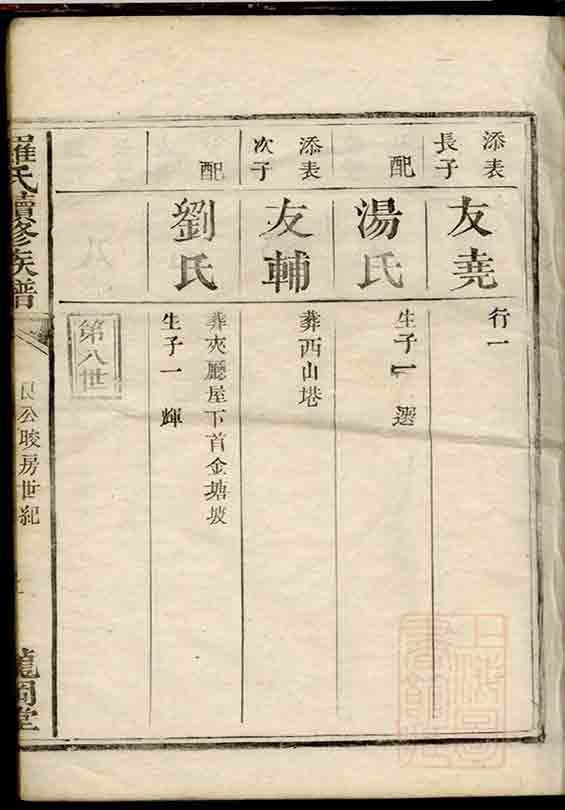 添表
長子
友堯
行一
配
湯氏
生子一 選
添表
次子
友輔
葬西山塔
配
劉氏
葬夾廳屋下首金塘坡
生子一 輝
第八世
羅氏續修族譜
良公晙房世紀
龍岡堂